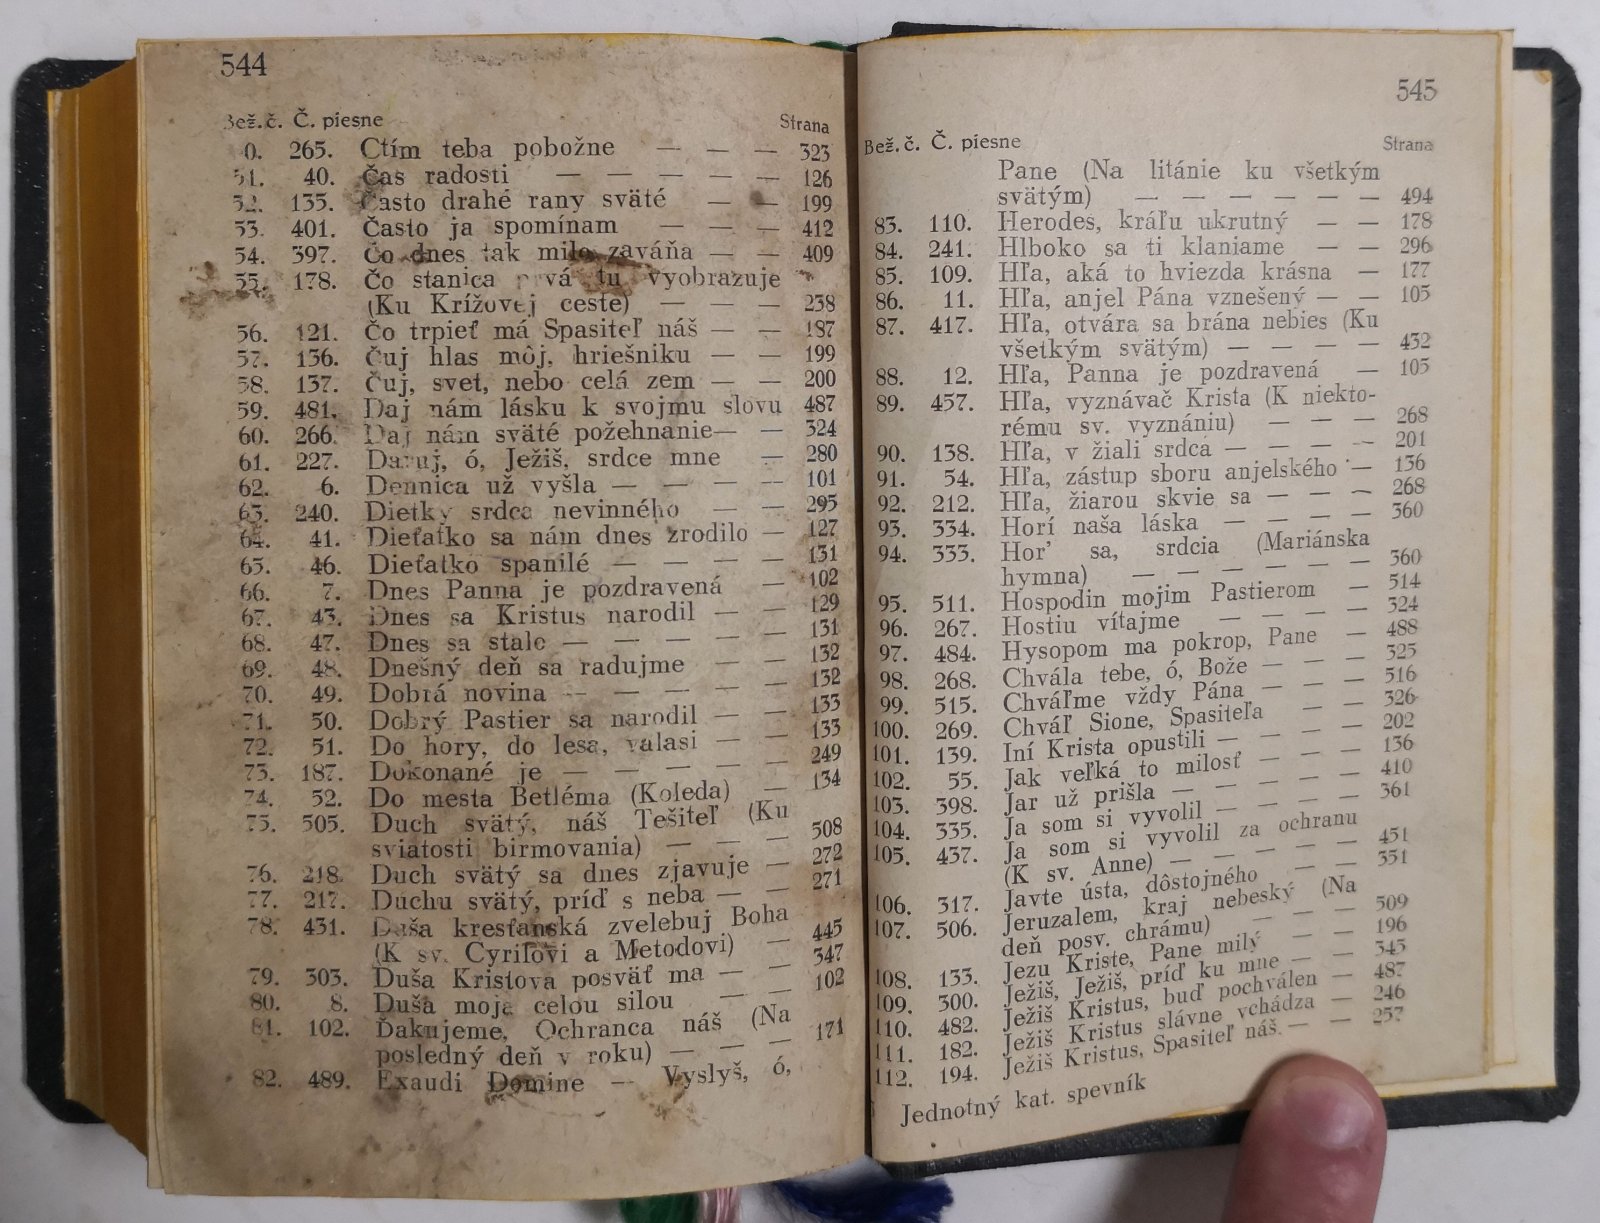 544
Bež.č. Č. piesne Strana
0. 265. Ctím teba pobožne — — — 323
51. 40. Čas radosti — — — — — 126
52. 135. Často drahé rany sväté — — 199
53. 401. Často ja spomínam — — — 412
54. 397. Čo dnes tak milo zaváňa — — 409
55. 178. Čo stanica prvá tu vyobrazuje
(Ku Krížovej ceste) — — — 238
56. 121. Čo trpieť má Spasiteľ náš — — 187
57. 136. Čuj hlas môj, hriešniku — — 199
58. 137. Čuj, svet, nebo celá zem — — 200
59. 481. Daj nám lásku k svojmu slovu 487
60. 266. Daj nám sväté požehnanie — — 324
61. 227. Daruj, ó, Ježiš, srdce mne — 280
62. 6. Dennica už vyšla — — — — 101
63. 240. Dietky srdca nevinného — — 295
64. 41. Dieťatko sa nám dnes zrodilo — 127
65. 46. Dieťatko spanilé — — — — 131
66. 7. Dnes Panna je pozdravená — 102
67. 43. Dnes sa Kristus narodil — — 129
68. 47. Dnes sa stalo — — — — — 131
69. 48. Dnešný deň sa radujme — — 132
70. 49. Dobrá novina — — — — — 132
71. 50. Dobrý Pastier sa narodil — — 133
72. 51. Do hory, do lesa, valasi — — 133
73. 187. Dokonané je — — — — — 249
74. 52. Do mesta Betléma (Koleda) — 134
75. 505. Duch svätý, náš Tešiteľ (Ku
sviatosti birmovania) — — — 508
76. 218. Duch svätý sa dnes zjavuje — 272
77. 217. Duchu svätý, príď s neba — — 271
78. 431. Duša kresťanská zvelebuj Boha
(K sv. Cyrilovi a Metodovi) — 445
79. 303. Duša Kristova posväť ma — — 347
80. 8. Duša moja celou silou — — 102
81. 102. Ďakujeme, Ochranca náš (Na
posledný deň v roku) — — — 171
82. 489. Exaudi Domine — Vyslyš, ó,
545
Bež. č. Č. piesne Strana
Pane (Na litánie ku všetkým
svätým) — — — — — — 494
83. 110. Herodes, kráľu ukrutný — — 178
84. 241. Hlboko sa ti klaniame — — 296
85. 109. Hľa, aká to hviezda krásna — 177
86. 11. Hľa, anjel Pána vznešený — — 105
87. 417. Hľa, otvára sa brána nebies (Ku
všetkým svätým) — — — — 432
88. 12. Hľa, Panna je pozdravená — 105
89. 457. Hľa, vyznávač Krista (K niekto-
rému sv. vyznániu) — — — 268
90. 138. Hľa, v žiali srdca — — — — 201
91. 54. Hľa, zástup sboru anjelského — 136
92. 212. Hľa, žiarou skvie sa — — — 268
93. 334. Horí naša láska — — — — 360
94. 333. Hor' sa, srdcia (Mariánska
hymna) — — — — — — 360
95. 511. Hospodin mojim Pastierom — 514
96. 267. Hostiu vítajme — — — — 324
97. 484. Hysopom ma pokrop, Pane — 488
98. 268. Chvála tebe, ó, Bože — — — 325
99. 515. Chváľme vždy Pána — — — 516
100. 269. Chváľ Sione, Spasiteľa — — 326
101. 139. Iní Krista opustili — — — — 202
102. 55. Jak veľká to milosť — — — 136
103. 398. Jar už prišla — — — — — 410
104. 335. Ja som si vyvolil — — — — 361
105. 437. Ja som si vyvolil za ochranu
(K sv. Anne) — — — — — 451
106. 317. Javte ústa, dôstojného — — 351
107. 506. Jeruzalem, kraj nebeský (Na
deň posv. chrámu) — — — 509
108. 133. Jezu Kriste, Pane milý — — 196
109. 300. Ježiš, Ježiš, príď ku mne — — 343
110. 482. Ježiš Kristus, buď pochválen — 487
111. 182. Ježiš Kristus slávne vchádza — 246
112. 194. Ježiš Kristus, Spasiteľ náš. — — 257
Jednotný kat. spevník